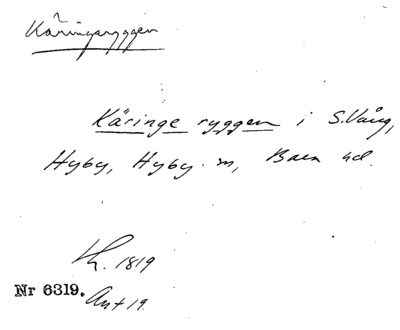 Käringaryggen
Käringe ryggen i S. Vång,
Hyby, Hyby sn, Bara hd.
Lh. 1819
Nr 6319.
Akt 19.